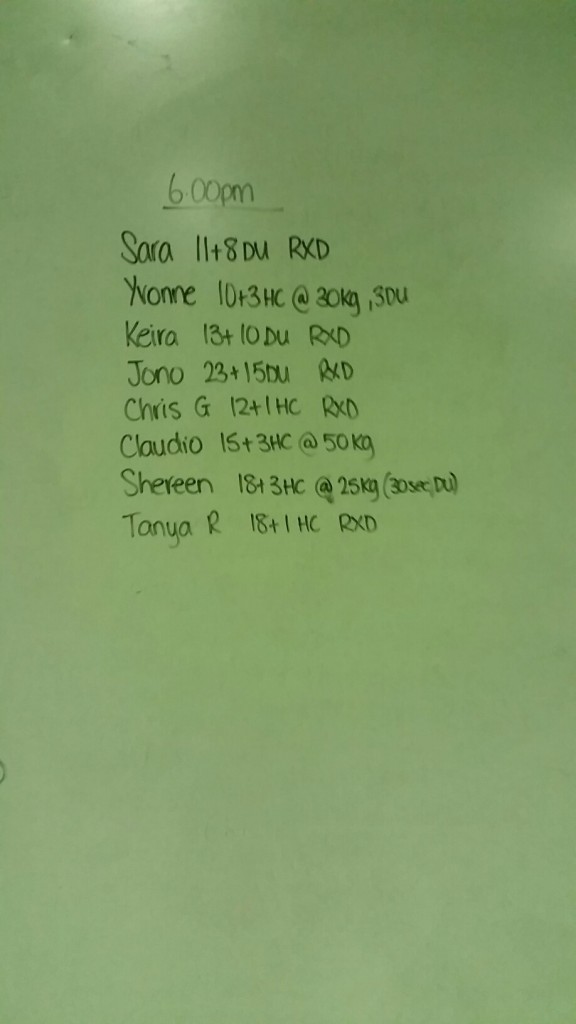 6.00pm
Sara 11+8DU RXD
Yvonne 10+3HC @ 30kg, 3DU
Keira 13+10DU RXD
Jono 23+15DU RXD
Chris G 12+1HC RXD
Claudio 15+3HC @ 50kg
Shereen 18+3HC @ 25kg (30sec DU)
Tanya R 18+1 HC RXD